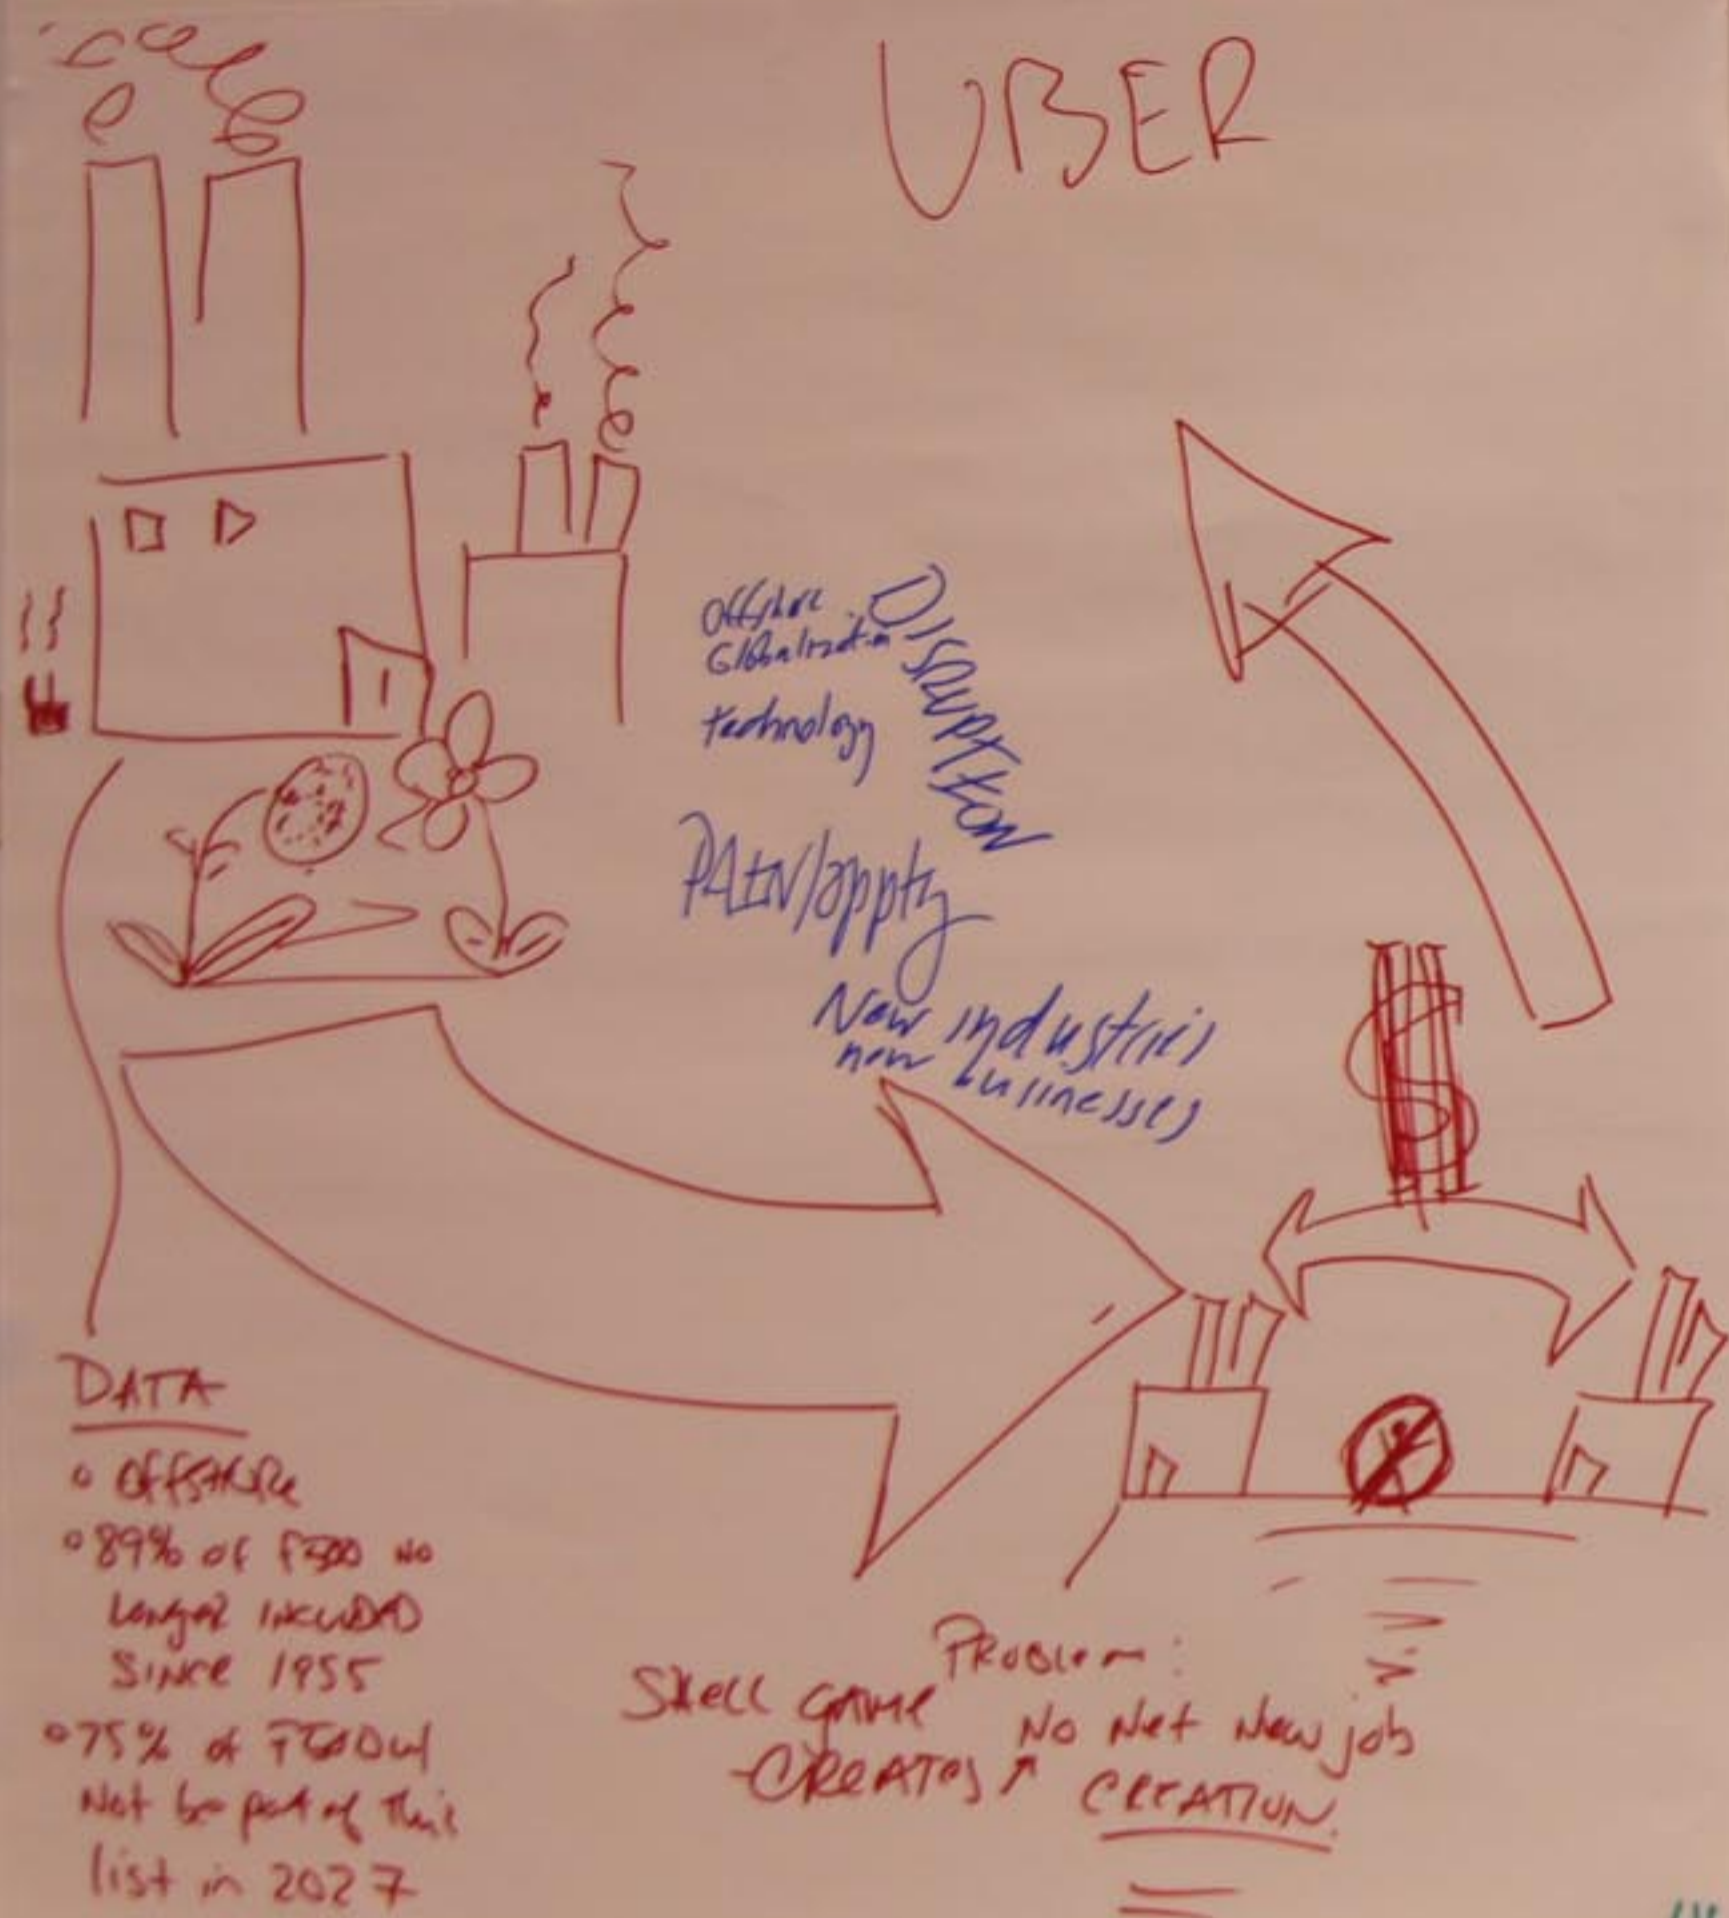 UBER
Offshore
Globalization
technology
DISRUPTION
PAIN/oppty
New industries
new businesses
$
DATA
o OFFSHORE
o 89% of F500 no
Longer INCLUDED
SINCE 1955
o 75% of F500 w/
Not be part of this
list in 2027
Problem:
Shell GAME
No Net New job
CREATES ↗ CREATION.